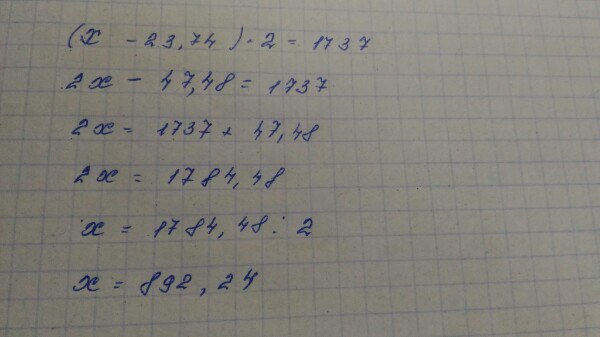 (x - 23,74) · 2 = 1737
2x - 47,48 = 1737
2x = 1737 + 47,48
2x = 1784,48
x = 1784,48 : 2
x = 892,24